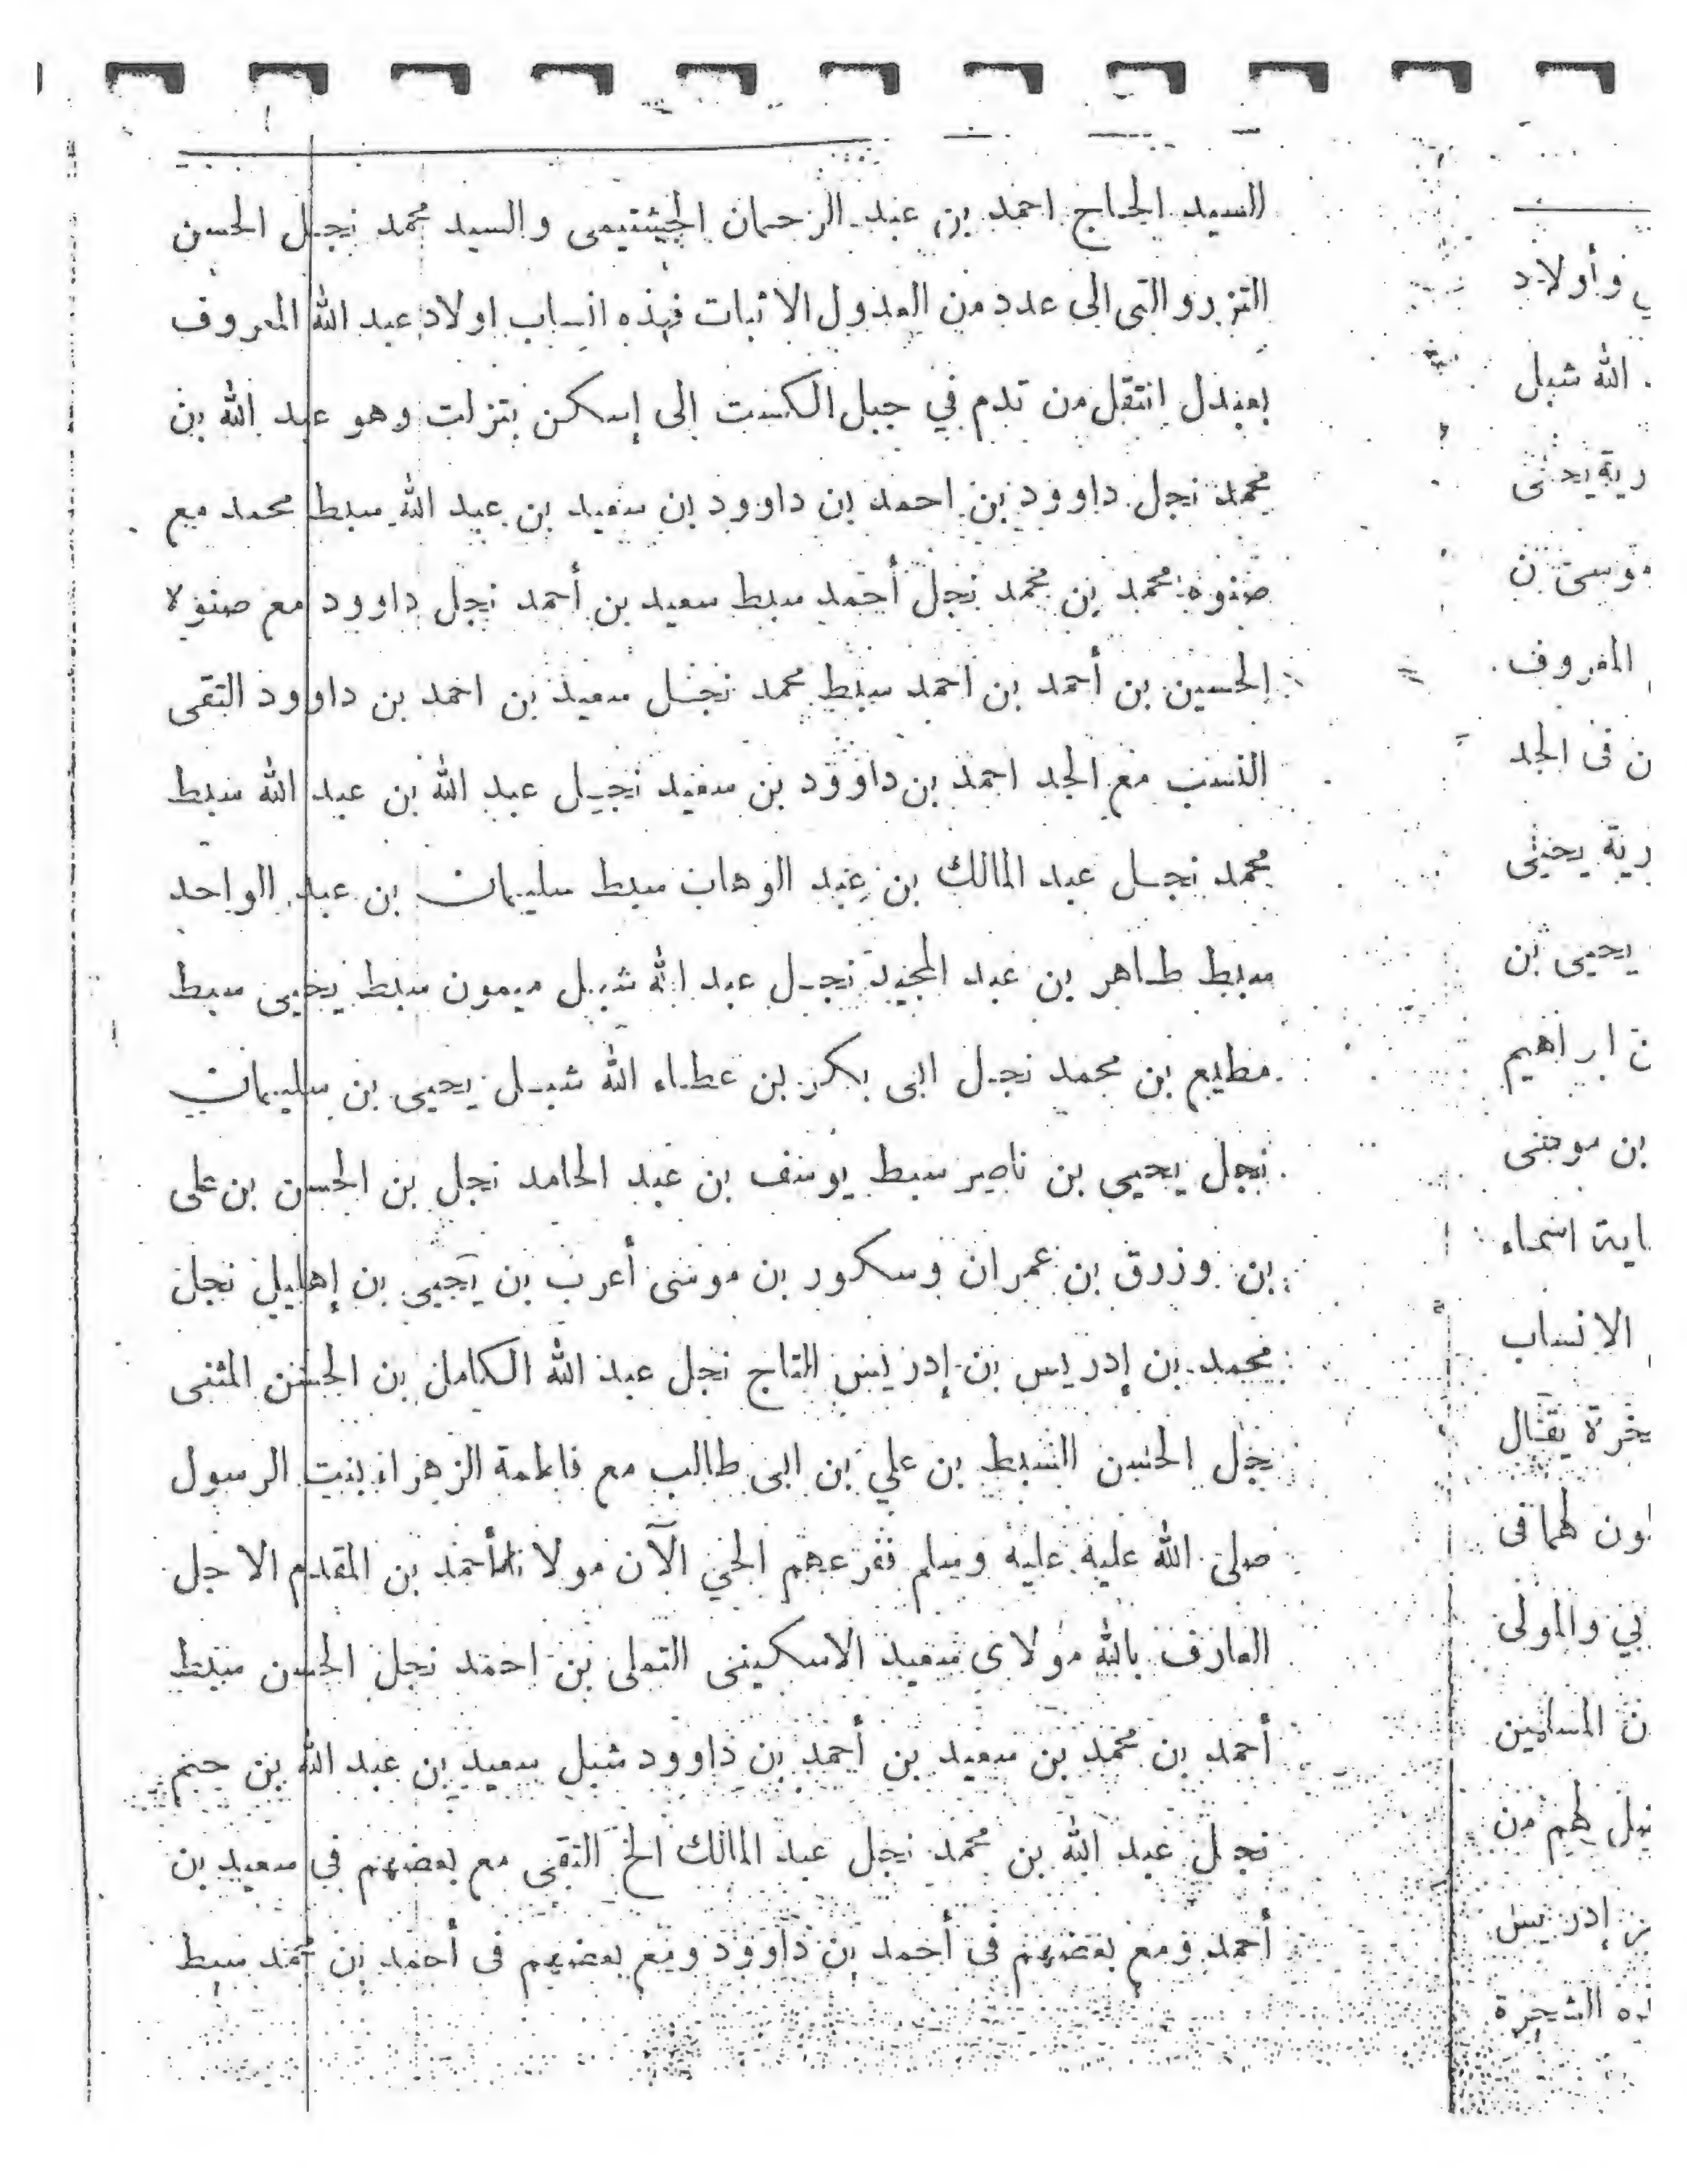 السيد الحاج احمد بن عبد الرحمان الجشتيمى والسيد محمد نجل الحسن
التزروالتى الى عدد من العدول الاثبات فهذه انساب اولاد عبد الله المعروف
بعبدل انتقل من تدم في جبل الكست إلى إسكن بتزلت وهو عبد الله بن
محمد نجل داوود بن احمد بن داوود بن سعيد بن عبد الله سبط محمد مع
صنوه محمد بن محمد نجل أحمد سبط سعيد بن أحمد نجل داوود مع صنوه
الحسين بن أحمد بن احمد سبط محمد نجل سعيد بن احمد بن داوود التقى
النسب مع الجد احمد بن داوود بن سعيد نجل عبد الله بن عبد الله سبط
محمد نجل عبد المالك بن عبد الوهاب سبط سليمان بن عبد الواحد
سبط طاهر بن عبد المجيد نجل عبد الله شبل ميمون سبط يحيى سبط
مطيع بن محمد نجل ابى بكر بن عطاء الله شبل يحيى بن سليمان
نجل يحيى بن ناصر سبط يوسف بن عبد الحامد نجل بن الحسن بن على
بن وزرق بن عمران وسكور بن موسى أعرب بن يحيى بن إهليل نجل
محمد بن إدريس بن إدريس التاج نجل عبد الله الكامل بن الحسن المثنى
نجل الحسن السبط بن علي بن ابى طالب مع فاطمة الزهراء بنت الرسول
صلى الله عليه عليه وسلم ففرعهم الحي الآن مولانا أحمد بن المقدم الاجل
العارف بالله مولاى سعيد الاسكينى التملى بن احمد نجل الحسن سبط
أحمد بن محمد بن سعيد بن أحمد بن داوود شبل سعيد بن عبد الله بن حيم
نجل عبد الله بن محمد نجل عبد المالك الخ التقى مع بعضهم فى سعيد بن
أحمد ومع بعضهم فى أحمد بن داوود ومع بعضهم فى أحمد بن محمد سبط
وأولاد
الله شبل
يحيى
موسى ن
المعروف
ن فى الجد
رية يحيى
يحيى بن
ن ابراهيم
بن موسى
اية اسماء
الانساب
يقال
ون لهما فى
بي والمولى
ن المسلمين
لهم من
إدريس
ه الشجرة